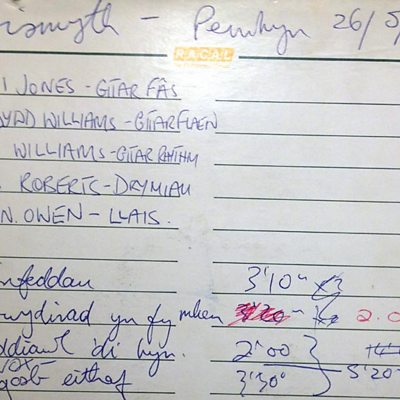 ismyth - Penrhyn 26/5/
RACAL
I JONES - GITAR FÂS
YDD WILLIAMS - GITARFLAEN
WILLIAMS - GITAR RHYTHM
. ROBERTS - DRYMIAU
N. OWEN - LLAIS.
nfeddau 3'10"
wydinad yn fy mhen 2.0
ddiawl di hyn. 2'00
eithaf 3'30" 5'20"